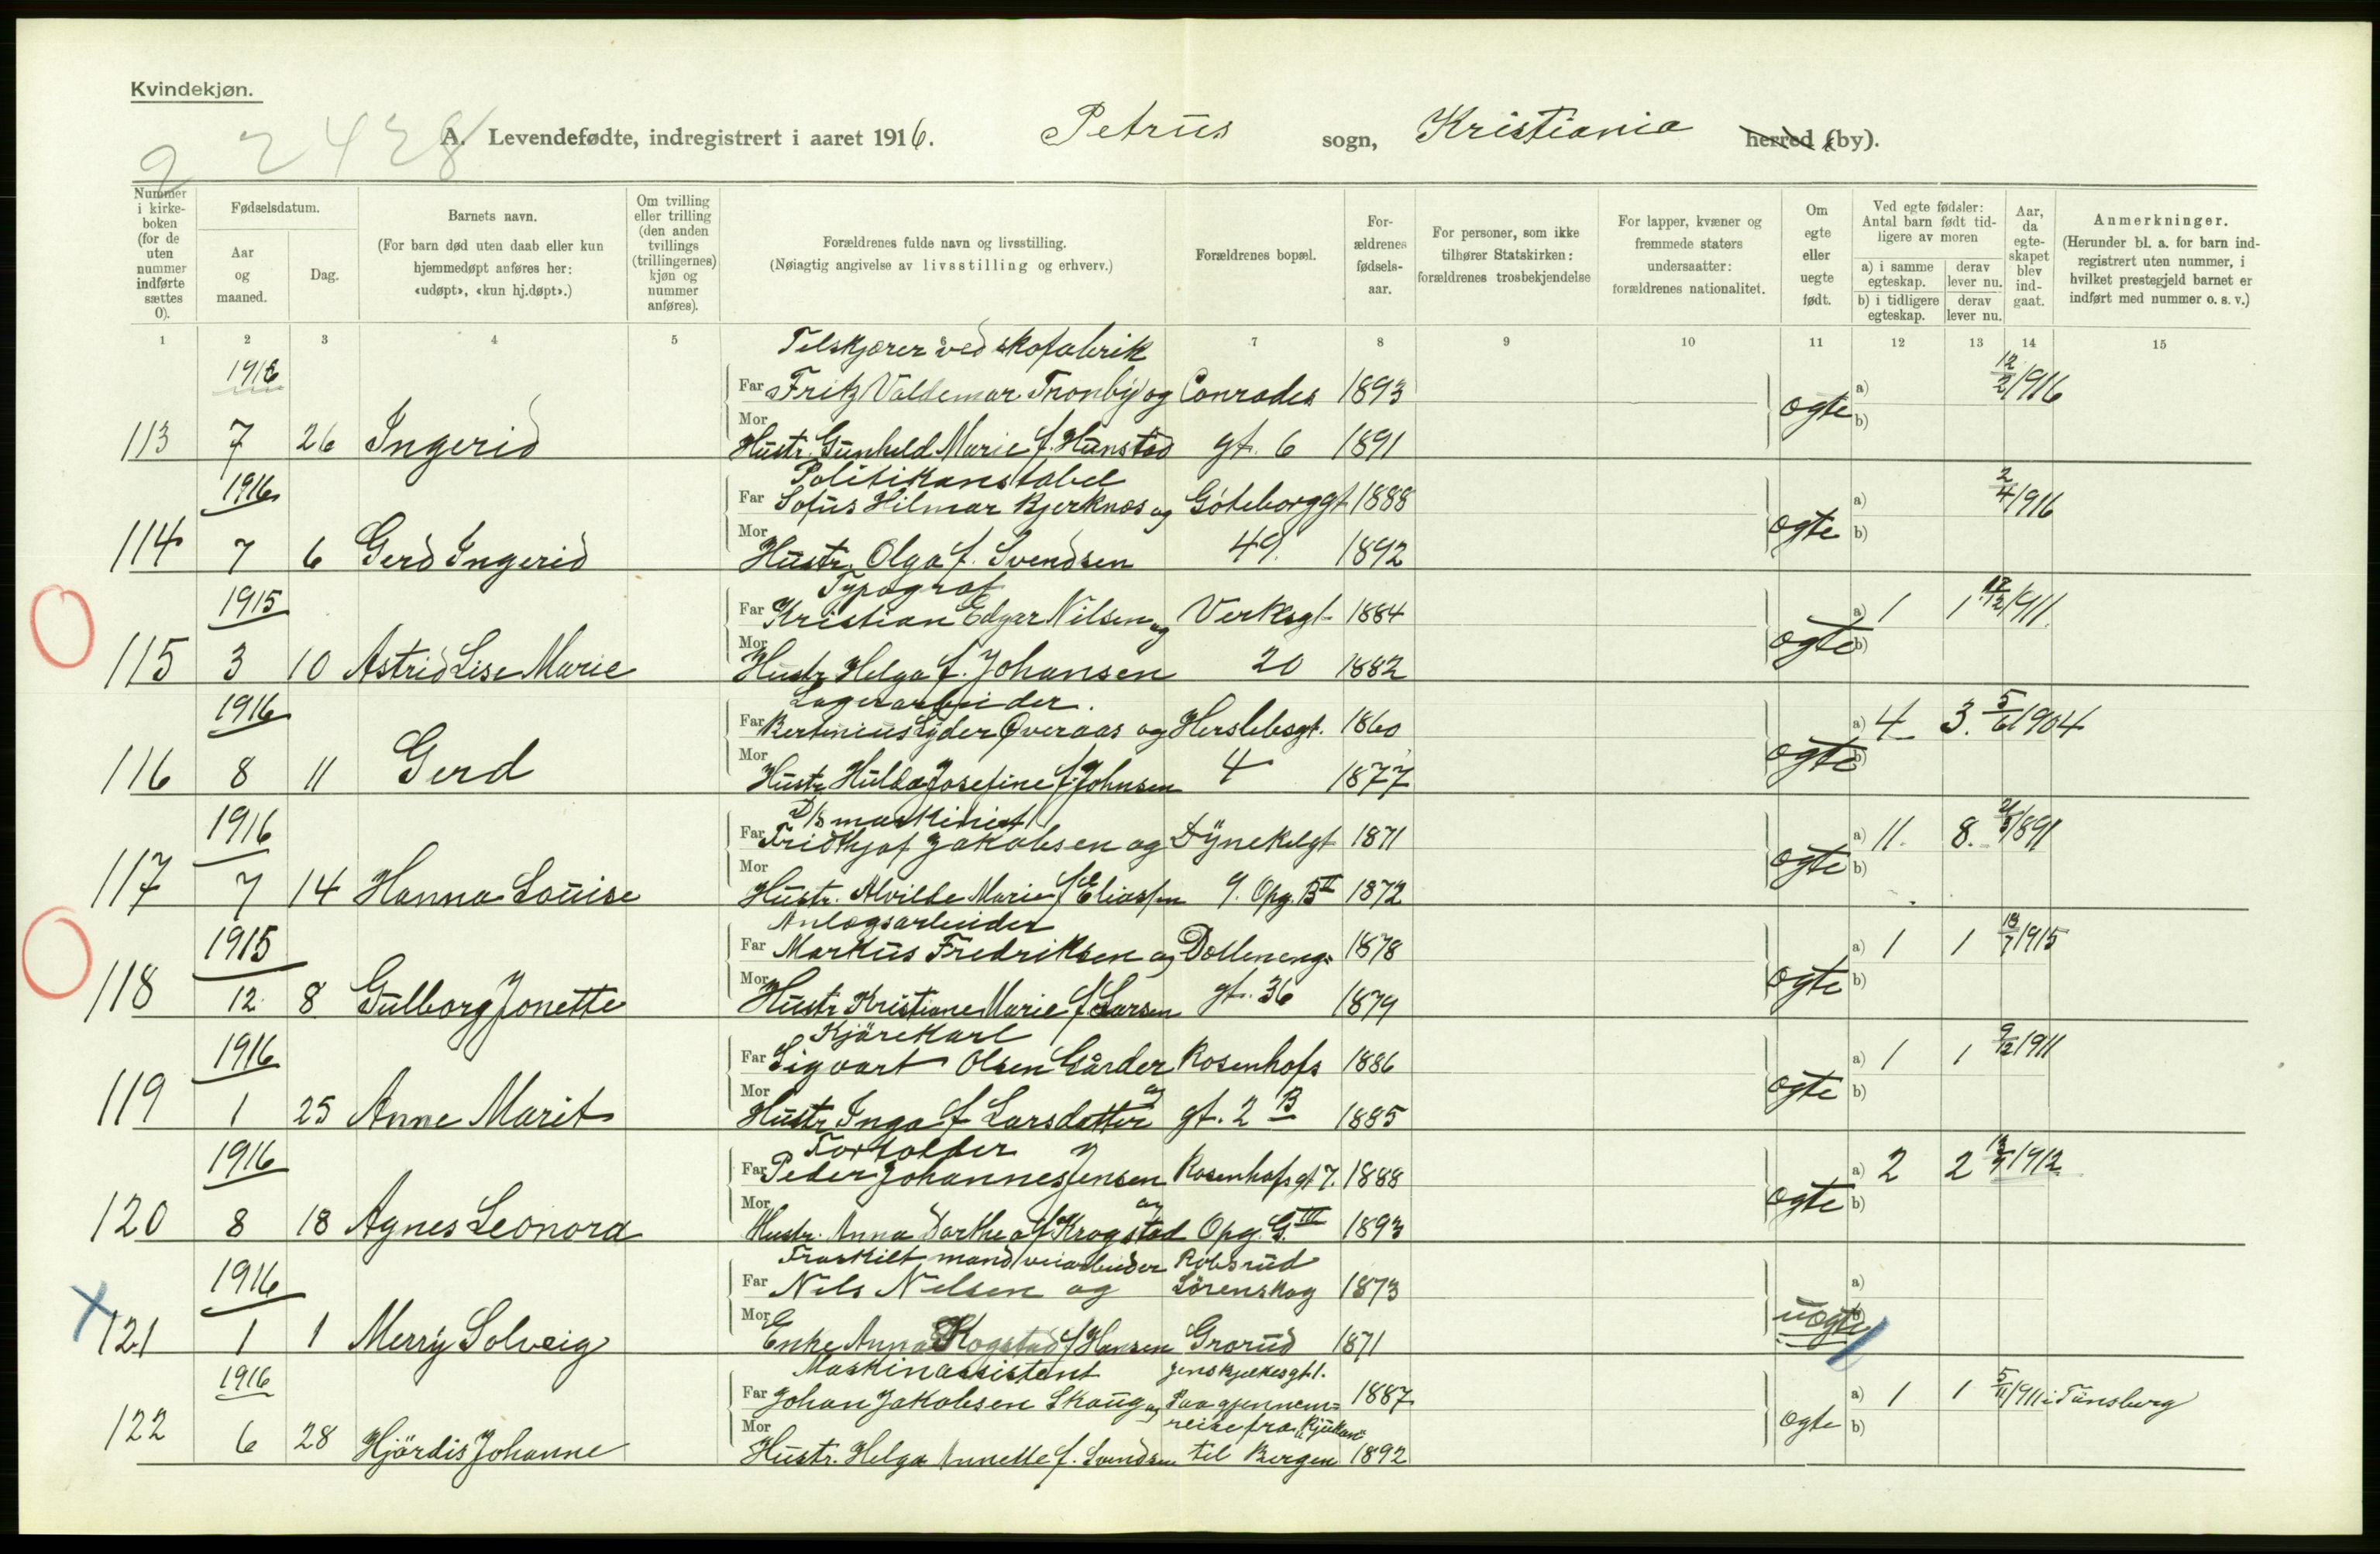 Kvindekjøn.
2 2428
A. Levendefødte, indregistrert i aaret 1916. Petrus sogn, Kristiania herred (by).
Nummer i kirkeboken (for de uten nummer indførte sættes 0).
Fødselsdatum.
Aar og maaned.
Dag.
Barnets navn.
(For barn død uten daab eller kun hjemmedøpt anføres her: «udøpt», «kun hj.døpt».)
Om tvilling eller trilling (den anden tvillings (trillingernes) kjøn og nummer anføres).
Forældrenes fulde navn og livsstilling.
(Nøiagtig angivelse av livsstilling og erhverv.)
Forældrenes bopæl.
Forældrenes fødselsaar.
For personer, som ikke tilhører Statskirken: forældrenes trosbekjendelse
For lapper, kvæner og fremmede staters undersaatter: forældrenes nationalitet.
Om egte eller uegte født.
Ved egte fødsler: Antal barn født tidligere av moren
a) i samme egteskap. derav lever nu.
b) i tidligere egteskap. derav lever nu.
Aar, da egteskapet blev indgaat.
Anmerkninger.
(Herunder bl. a. for barn indregistrert uten nummer, i hvilket prestegjeld barnet er indført med nummer o. s. v.)
1 2 3 4 5 7 8 9 10 11 12 13 14 15
Tilskjærer ved skofabrik
1916 Far Fritz Valdemar Tronby og Conrades 1893 a) 12/2 1916
ægte b)
113 7 26 Ingerid Mor Hustr. Gunhild Marie f. Hunstad gt. 6 1891
Politikonstabel
1916 Far Sofus Hilmar Bjerknæs og Göteborggt 1888 a) 2/4 1916
ægte b)
114 7 6 Gerd Ingerid Mor Hustr. Olga f. Svendsen 49. 1892
Typograf
1915 Far Kristian Edgar Nilsen og Verksgt 1884 a) 1 1 /12 1911.
ægte b)
115 3 10 Astrid Lise Marie Mor Hustr Helga f. Johansen 20 1882
Lagerarbeider.
1916 Far Bertinius Lyder Øveraas og Herslebsgt. 1860 a) 4 3. 5/6 1904
ægte b)
116 8 11 Gerd Mor Hustr. Hulda Josefine f. Johnsen 4 1877
D/s maskinist
1916 Far Fridtjof Jakobsen og Dynekilgt 1871 a) 11. 8. 1891
ægte b)
117 7 14 Hanna Louise Mor Hustr. Alvilde Marie f. Eliassen 9. Opg. B II 1872
Anlægsarbeider
1915 Far Markus Fredriksen og Dælleneng= 1878 a) 1 1 18/7 1915
ægte b)
118 12 8 Gulborg Jonette Mor Hustr Kristiane Marie f. Larsen gt. 36 1879
Kjörekarl
1916 Far Sigvart Olsen Gårder Rosenhofs 1886 a) 1 1 9/12 1911
og ægte b)
119 1 25 Anne Marit Mor Hustr Inga f Larsdatter gt. 2 B 1885
Forholder
1916 Far Peder Johannes Jensen Rosenhofsgt 7. 1888 a) 2 2 1912
og ægte b)
120 8 18 Agnes Leonora Mor Hustr. Anna Dorthea f Krogstad Opg. G. III 1893
Fraskilt mand veiarbeider Robsrud
1916 Far Nils Nilsen og Lörenskog 1873 a)
uægte b)
121 1 1 Merry Solveig Mor Enke Anna Kogstad f Hansen Grorud 1871
Maskinassistent Jens Bjelkesgt. 1.
1916 Far Johan Jakobsen Skaug og Paa gjennem= 1887 a) 1 1 5/11 1911 i Tünsberg
reise fra Rjukan ægte b)
122 6 28 Hjördis Johanne Mor Hustr. Helga Annette f. Svendsen til Bergen 1892